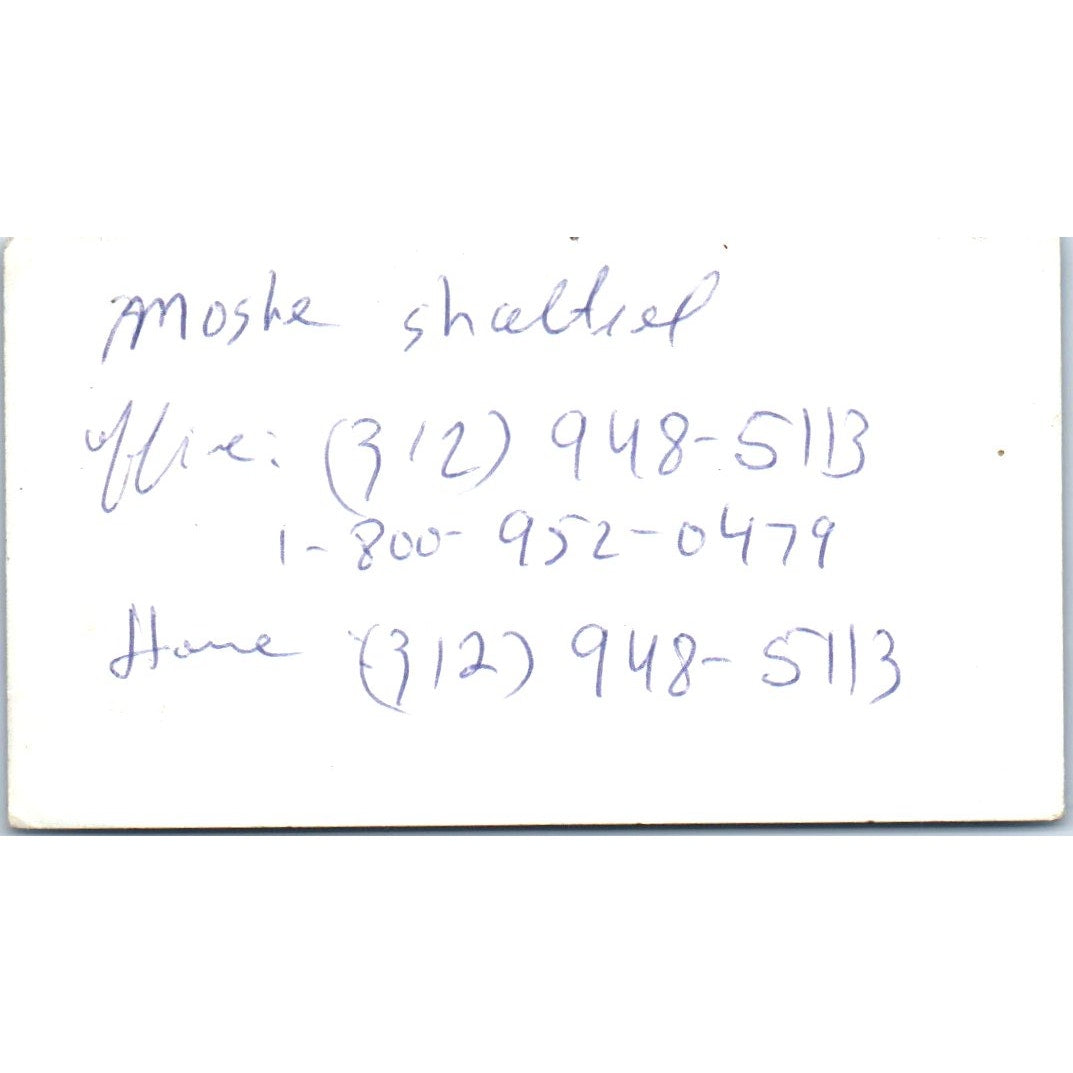 Moshe shaltiel
Office: (312) 948-5113
1-800-952-0479
Home (312) 948-5113